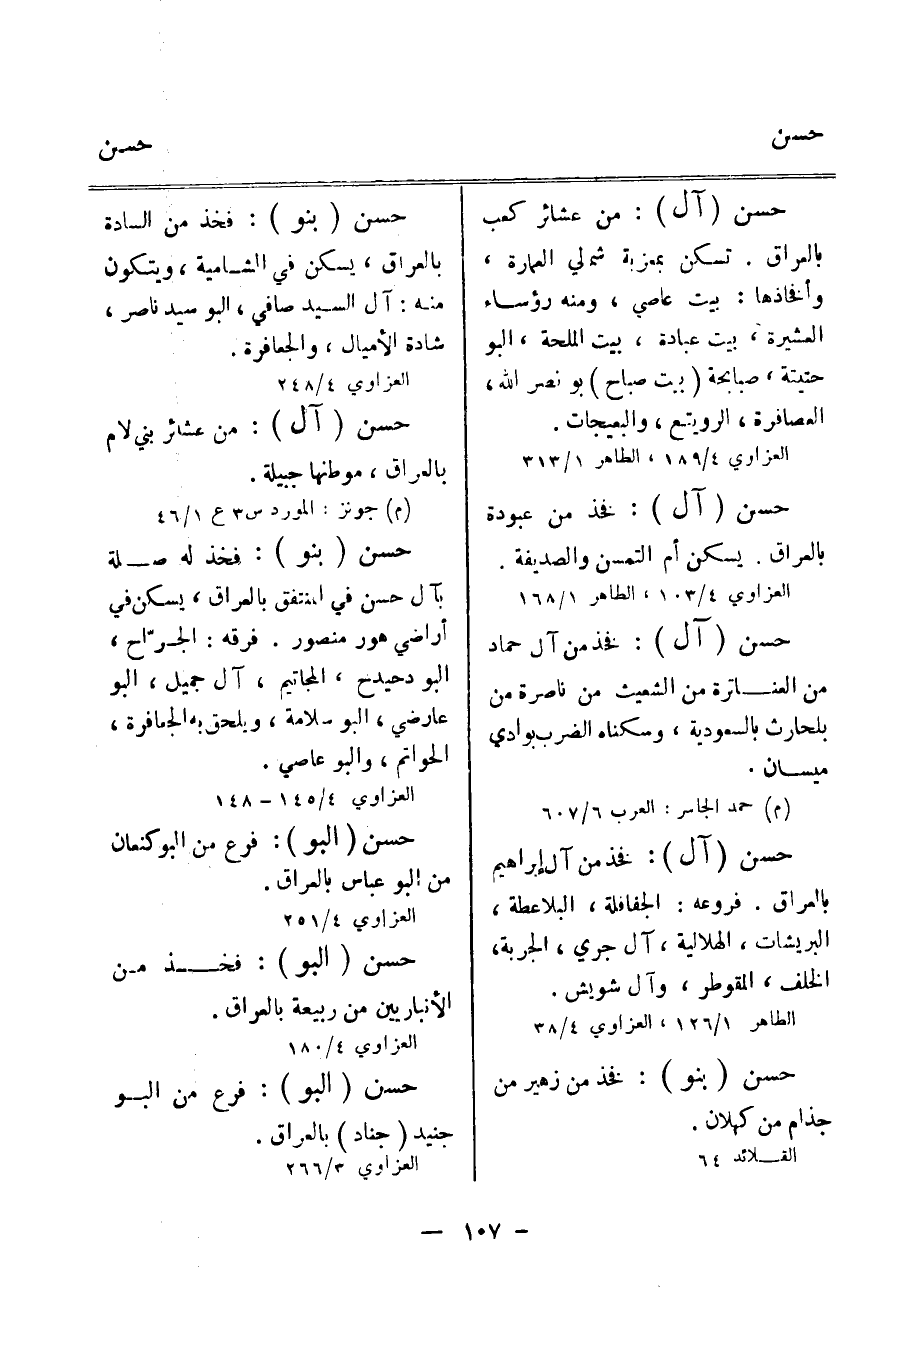 حسن
حسن
حسن ( آل ) : من عشائر كعب
بالعراق . تسكن بمعزبة شمالي العمارة ،
وأفخاذها : بيت عاصي ، ومنه رؤساء
العشيرة ، بيت عبادة ، بيت الملحة ، البو
حتيتة ، صبابحة ( بيت صباح ) بو نصر الله ،
العصافرة ، الرويتع ، والبعيجات .
العزاوي ١٨٩/٤ ، الطاهر ٣١٣/١
حسن ( آل ) : فخذ من عبودة
بالعراق . يسكن أم التمسن والصديفة .
العزاوي ١٠٣/٤ ، الطاهر ١٦٨/١
حسن ( آل ) : فخذ من آل حماد
من العناترة من الشعيث من ناصرة من
بلحارث بالسعودية ، وسكناه الضرب بوادي
ميسان .
(م) حمد الجاسر : العرب ٦٠٧/٦
حسن ( آل ) : فخذ من آل إبراهيم
بالعراق . فروعه : الجفافلة ، البلاعطة ،
البريشات ، الهلالية ، آل جري ، الجربة ،
الخلف ، المقوطر ، وآل شويش .
الطاهر ١٢٦/١ ، العزاوي ٣٨/٤
حسن ( بنو ) : فخذ من زهير من
جذام من كهلان .
القلائد ٦٤
حسن ( بنو ) : فخذ من السادة
بالعراق ، يسكن في الشامية ، ويتكون
منه : آل السيد صافي ، البو سيد ناصر ،
شادة الأميال ، والجعافرة .
العزاوي ٢٤٨/٤
حسن ( آل ) : من عشائر بني لام
بالعراق ، موطنها جبيلة .
(م) جونز : المورد س٣ ع ٤٦/١
حسن ( بنو ) : فخذ له صلة
بآل حسن في المنتفق بالعراق ، يسكن في
أراضي هور منصور . فرقه : الجرّاح ،
البو دحيدح ، المجاتيم ، آل جميل ، البو
عارضي ، البو سلامة ، ويلحق به الجعافرة ،
الحواتم ، والبو عاصي .
العزاوي ١٤٥/٤ - ١٤٨
حسن ( البو ) : فرع من البو كنعان
من البو عباس بالعراق .
العزاوي ٢٥١/٤
حسن ( البو ) : فخذ من
الأنباريين من ربيعة بالعراق .
العزاوي ١٨٠/٤
حسن ( البو ) : فرع من البو
جنيد ( جناد ) بالعراق .
العزاوي ٢٦٦/٣
- ١٠٧ -